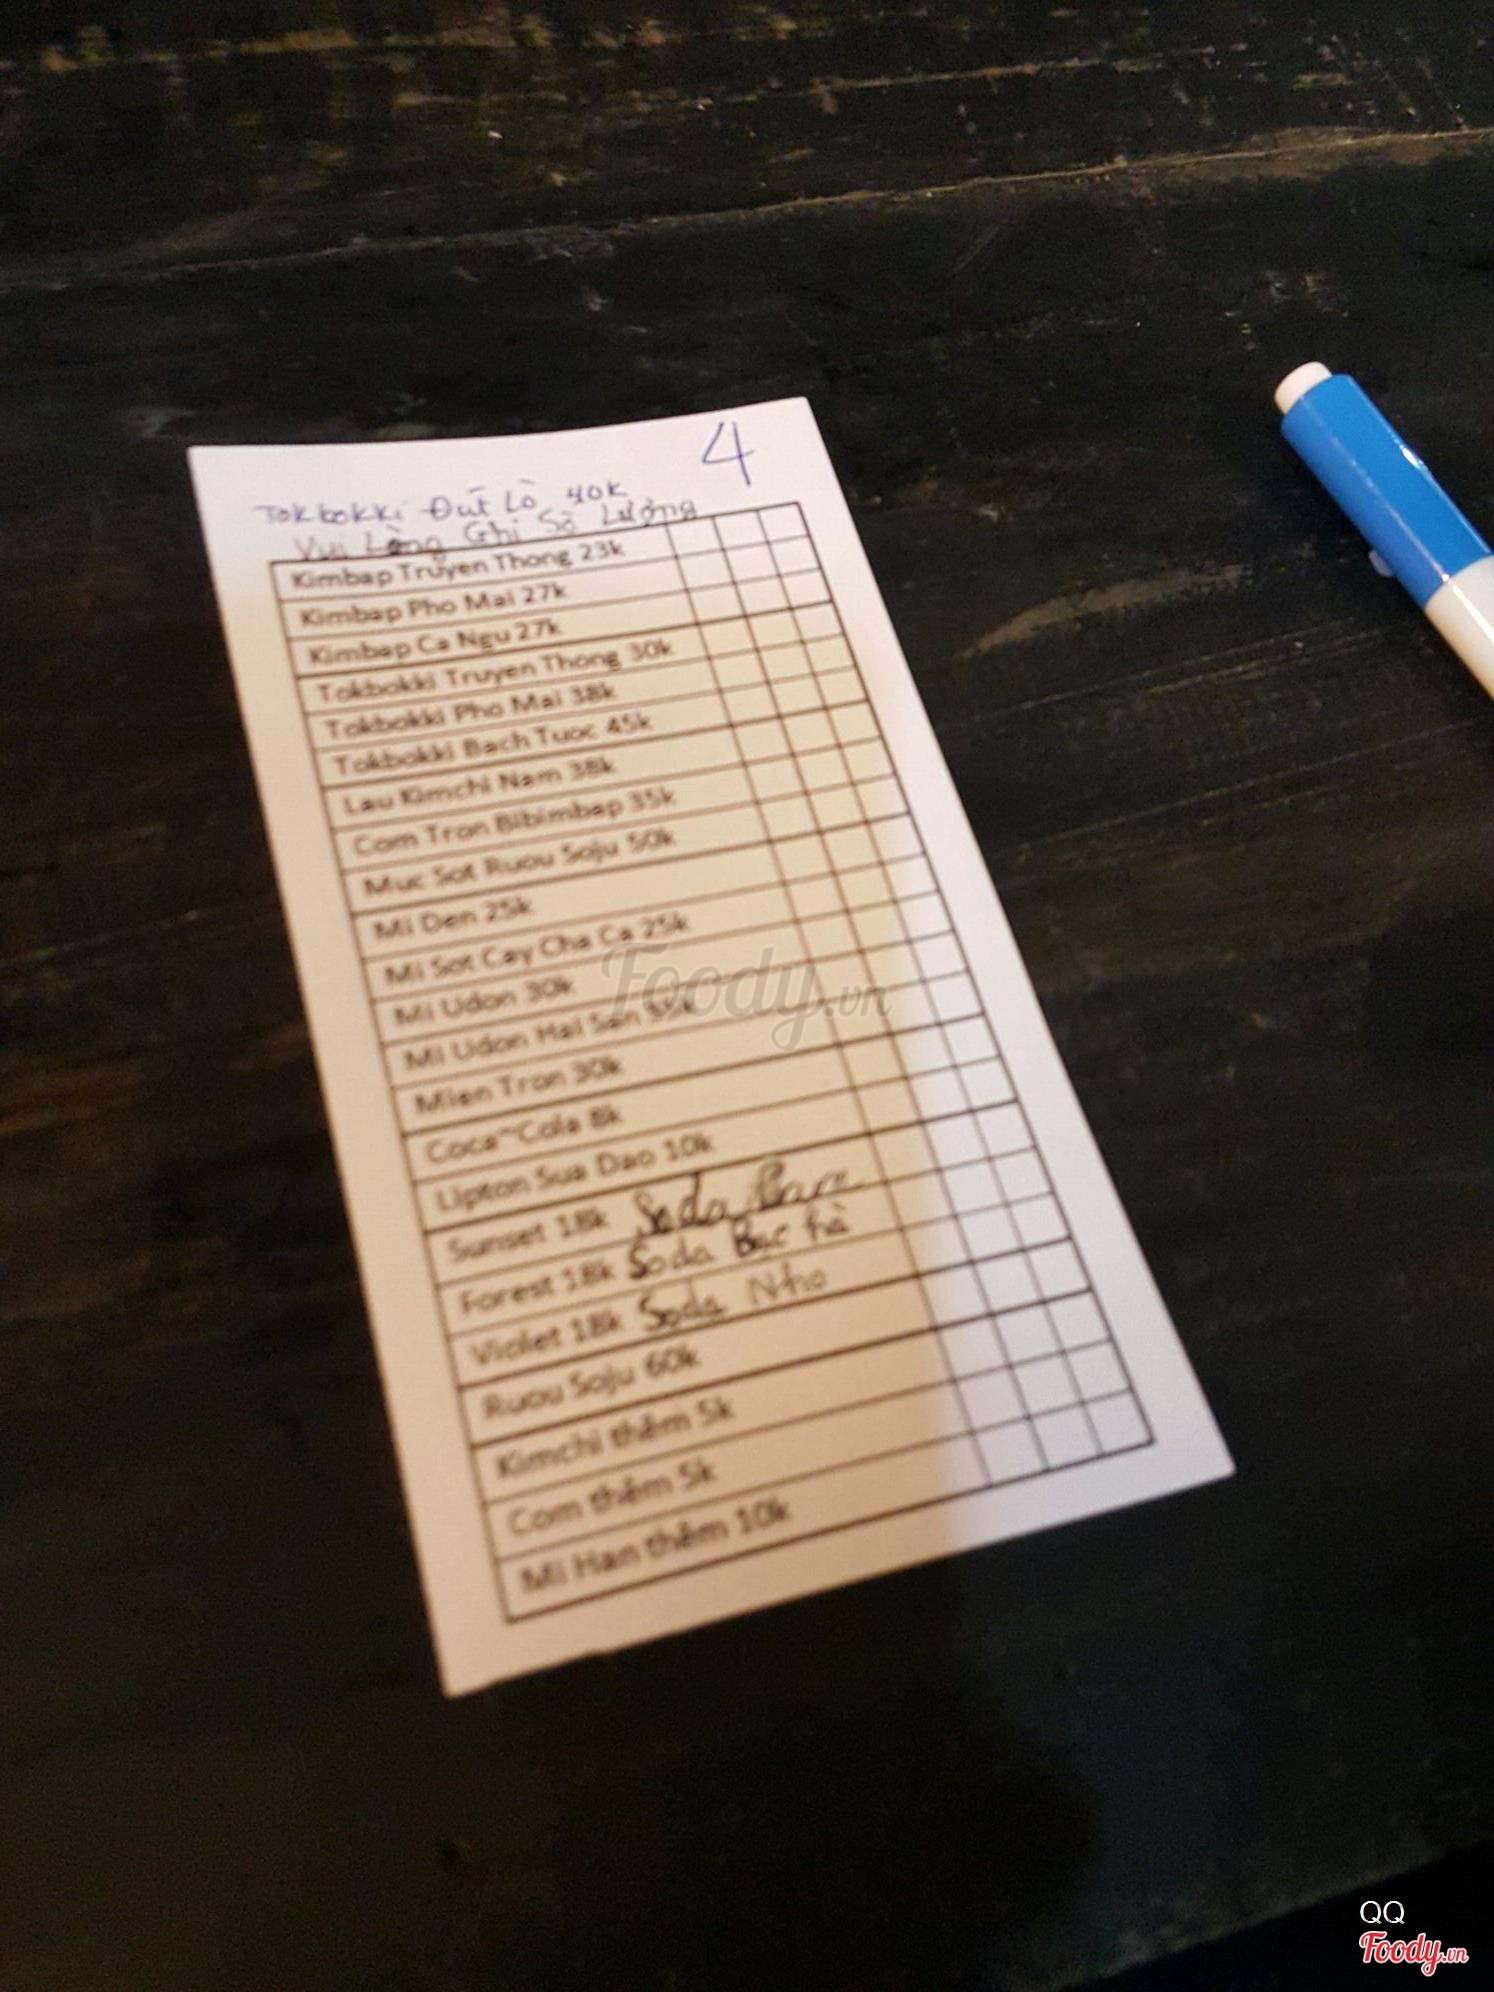 4
Tokbokki Đút Lò 40k
Vui Lòng Ghi Số Lượng
Kimbap Truyen Thong 23k
Kimbap Pho Mai 27k
Kimbap Ca Ngu 27k
Tokbokki Truyen Thong 30k
Tokbokki Pho Mai 38k
Tokbokki Bach Tuoc 45k
Lau Kimchi Nam 38k
Com Tron Bibimbap 35k
Muc Sot Ruou Soju 50k
Mi Den 25k
Mi Sot Cay Cha Ca 25k
Mi Udon 30k
Mi Udon Hai San 35k
Mien Tron 30k
Coca~Cola 8k
Lipton Sua Dao 10k
Sunset 18k Soda
Forest 18k Soda Bạc hà
Violet 18k Soda Nho
Ruou Soju 60k
Kimchi thêm 5k
Com thêm 5k
Mi Han thêm 10k
Foody.vn
QQ
Foody.vn